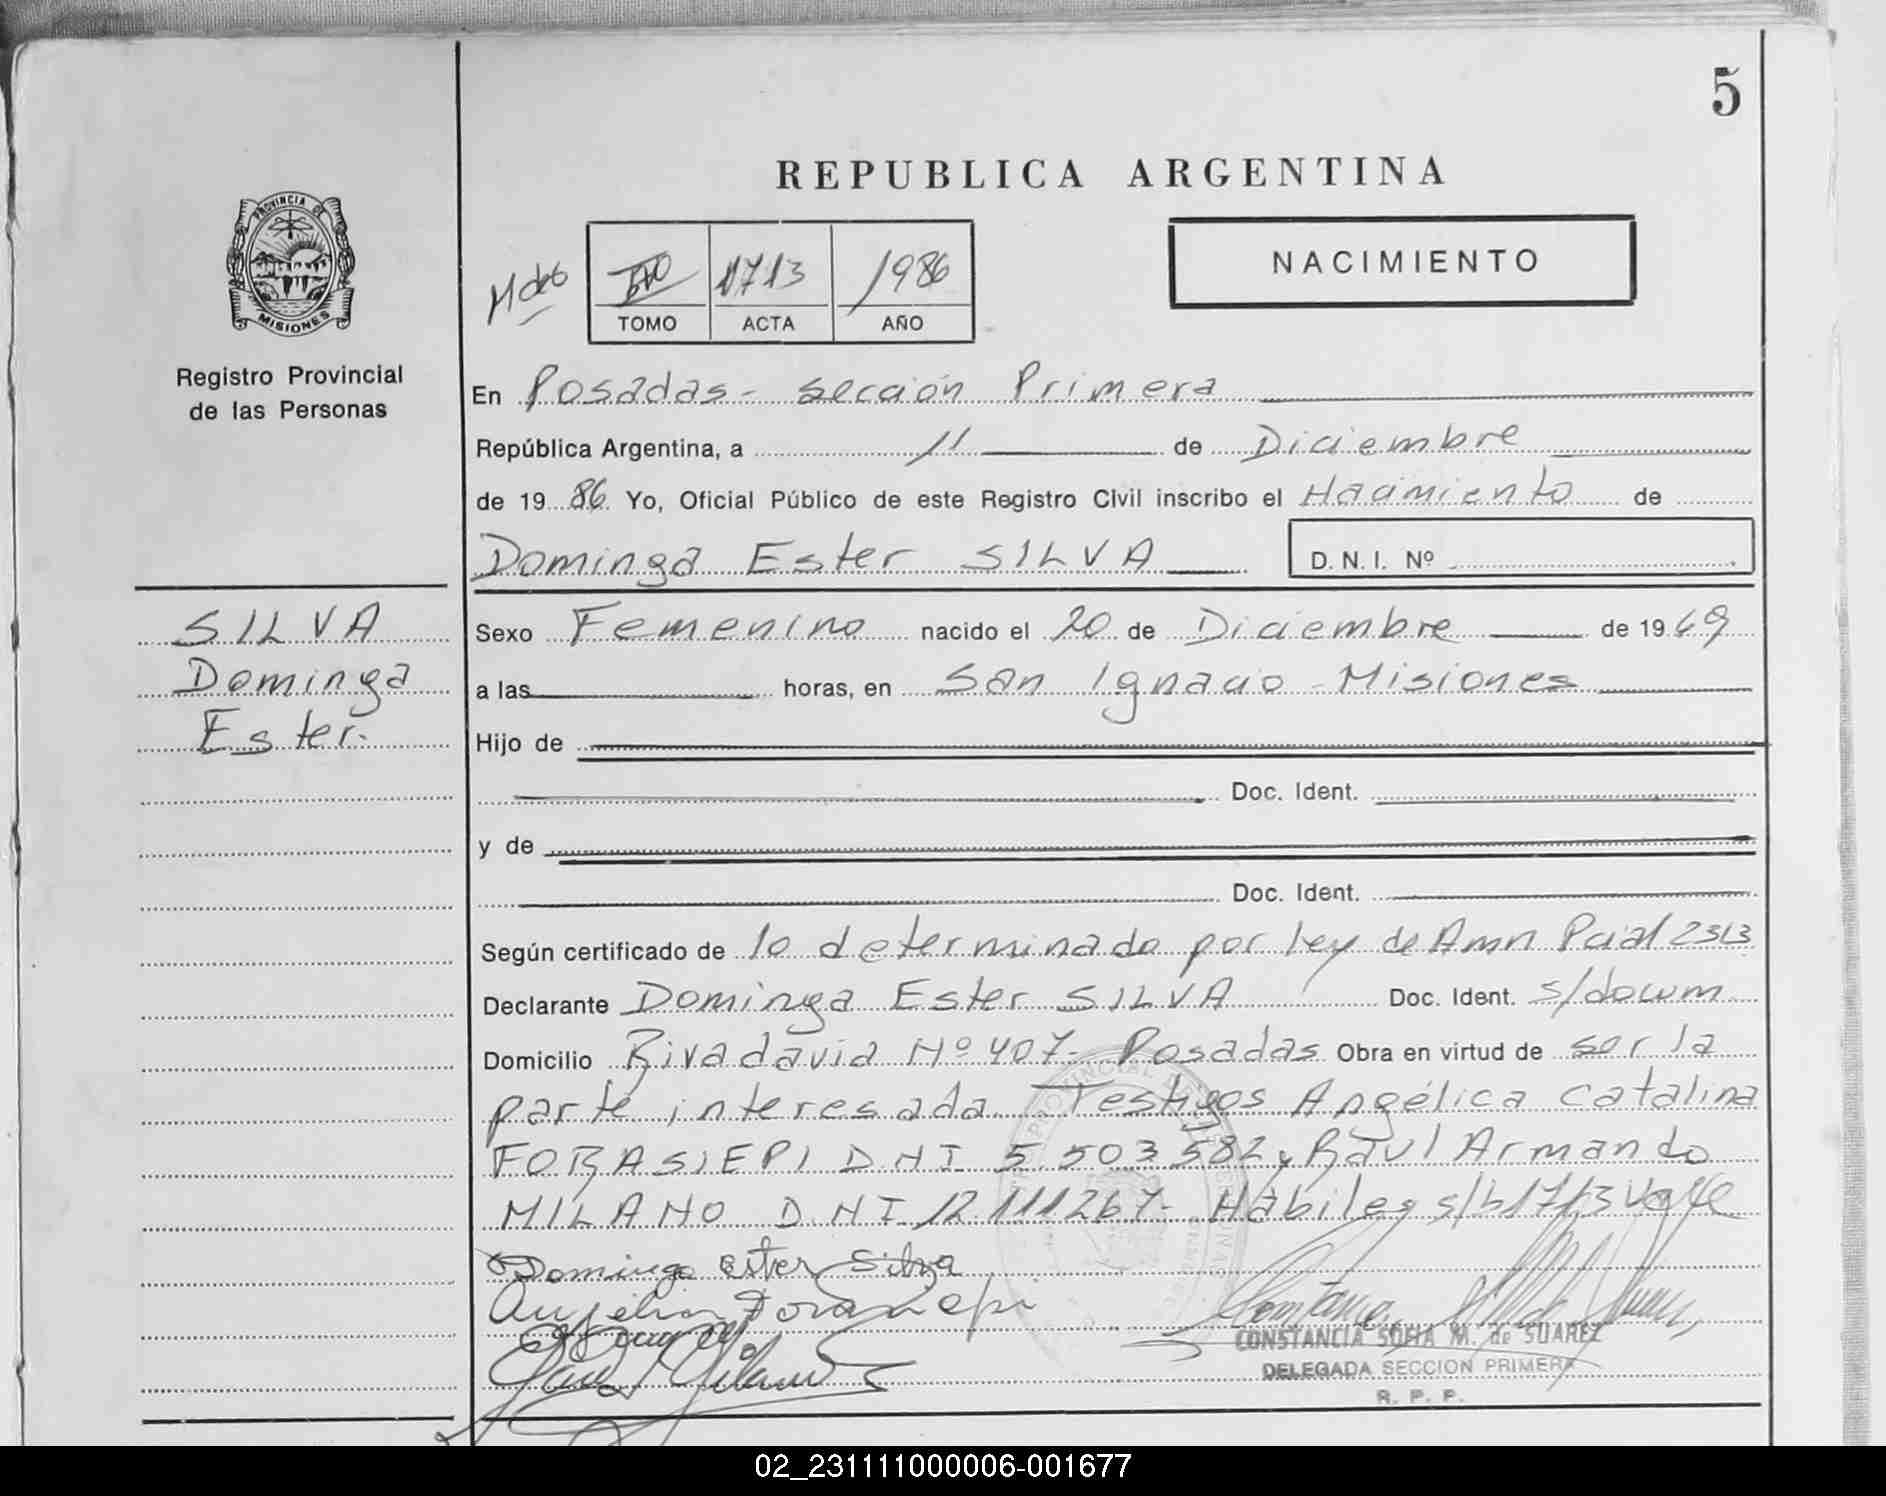 5
REPUBLICA ARGENTINA
PROVINCIA DE
MISIONES
Registro Provincial
de las Personas
1713 1986
TOMO ACTA AÑO
NACIMIENTO
En Posadas - sección Primera
República Argentina, a 11 de Diciembre
de 19 86 Yo, Oficial Público de este Registro Civil inscribo el Nacimiento de
Dominga Ester SILVA D.N.I. Nº
SILVA
Dominga
Ester.
Sexo Femenino nacido el 20 de Diciembre de 19 69
a las horas, en San Ignacio - Misiones
Hijo de
Doc. Ident.
y de
Doc. Ident.
Según certificado de lo determinado por ley de Amn Pcial 2313
Declarante Dominga Ester SILVA Doc. Ident. s/docum
Domicilio Rivadavia Nº 407- Posadas Obra en virtud de ser la
parte interesada Testigos Angélica Catalina
FORASIEPI DNI 5.503.582 y Raúl Armando
MILANO D.N.I 12.111267- Hábiles s/b 1713 Vale
Dominga Ester Silva
CONSTANCIA SOFIA M. de SUAREZ
DELEGADA SECCION PRIMERA
R. P. P.
02_231111000006-001677